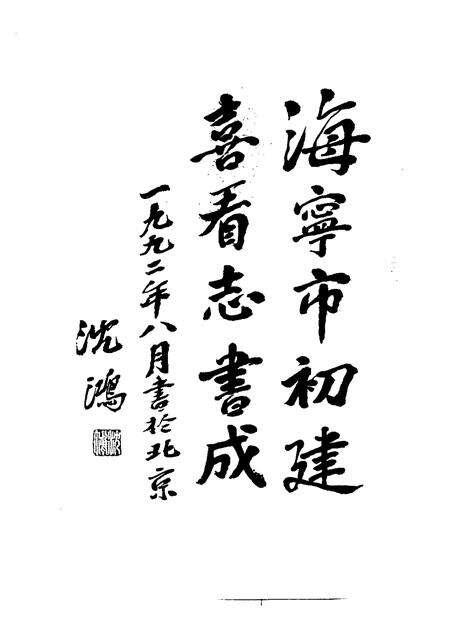 海寧市初建
喜看志書成
一九九二年八月書於北京
沈鴻